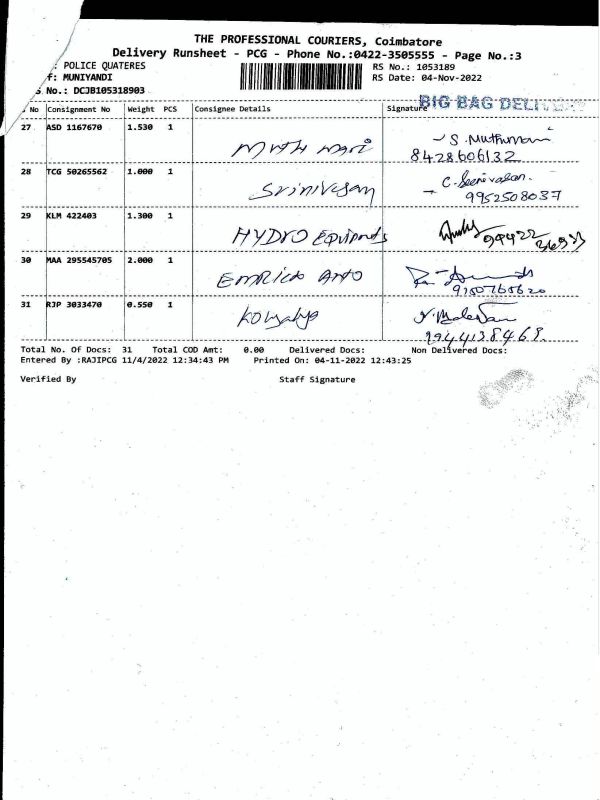 THE PROFESSIONAL COURIERS, Coimbatore
Delivery Runsheet - PCG - Phone No.:0422-3505555 - Page No.:3
: POLICE QUATERES
RS No.: 1053189
f: MUNIYANDI
RS Date: 04-Nov-2022
No.: DCJB105318903
BIG BAG DELIVERY
No Consignment No Weight PCS Consignee Details Signature
27 ASD 1167670 1.530 1
S. Muthumari
8428606132
28 TCG 50265562 1.000 1
Srinivasan
C. Seenivasan.
9952508037
29 KLM 422403 1.300 1
HYDRO Equipments
30 MAA 295545705 2.000 1
9150765620
31 RJP 3033470 0.550 1
9944138468
Total No. Of Docs: 31 Total COD Amt: 0.00 Delivered Docs: Non Delivered Docs:
Entered By :RAJIPCG 11/4/2022 12:34:43 PM Printed On: 04-11-2022 12:43:25
Verified By Staff Signature